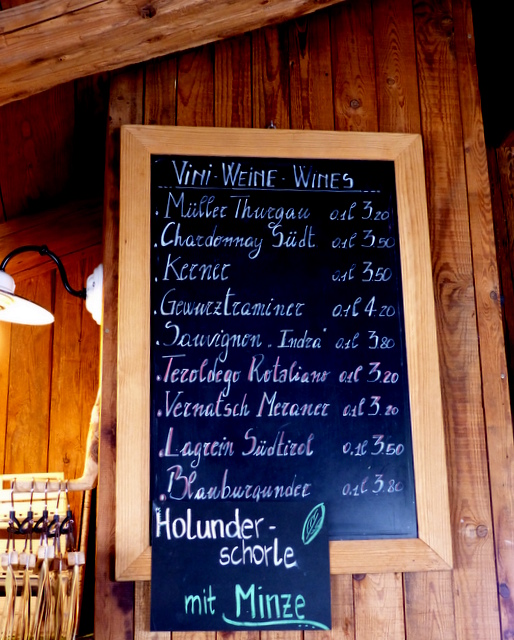 Vini - Weine - Wines
. Müller Thurgau 0.1l 3.20
. Chardonnay Südt. 0.1l 3.50
. Kerner 0.1l 3.50
. Gewurztraminer 0.1l 4.20
. Sauvignon „Indra“ 0.1l 3.80
. Teroldego Rotaliano 0.1l 3.20
. Vernatsch Meraner 0.1l 3.20
. Lagrein Südtirol 0.1l 3.50
. Blauburgunder 0.1l 3.80
Holunder-
schorle
mit Minze